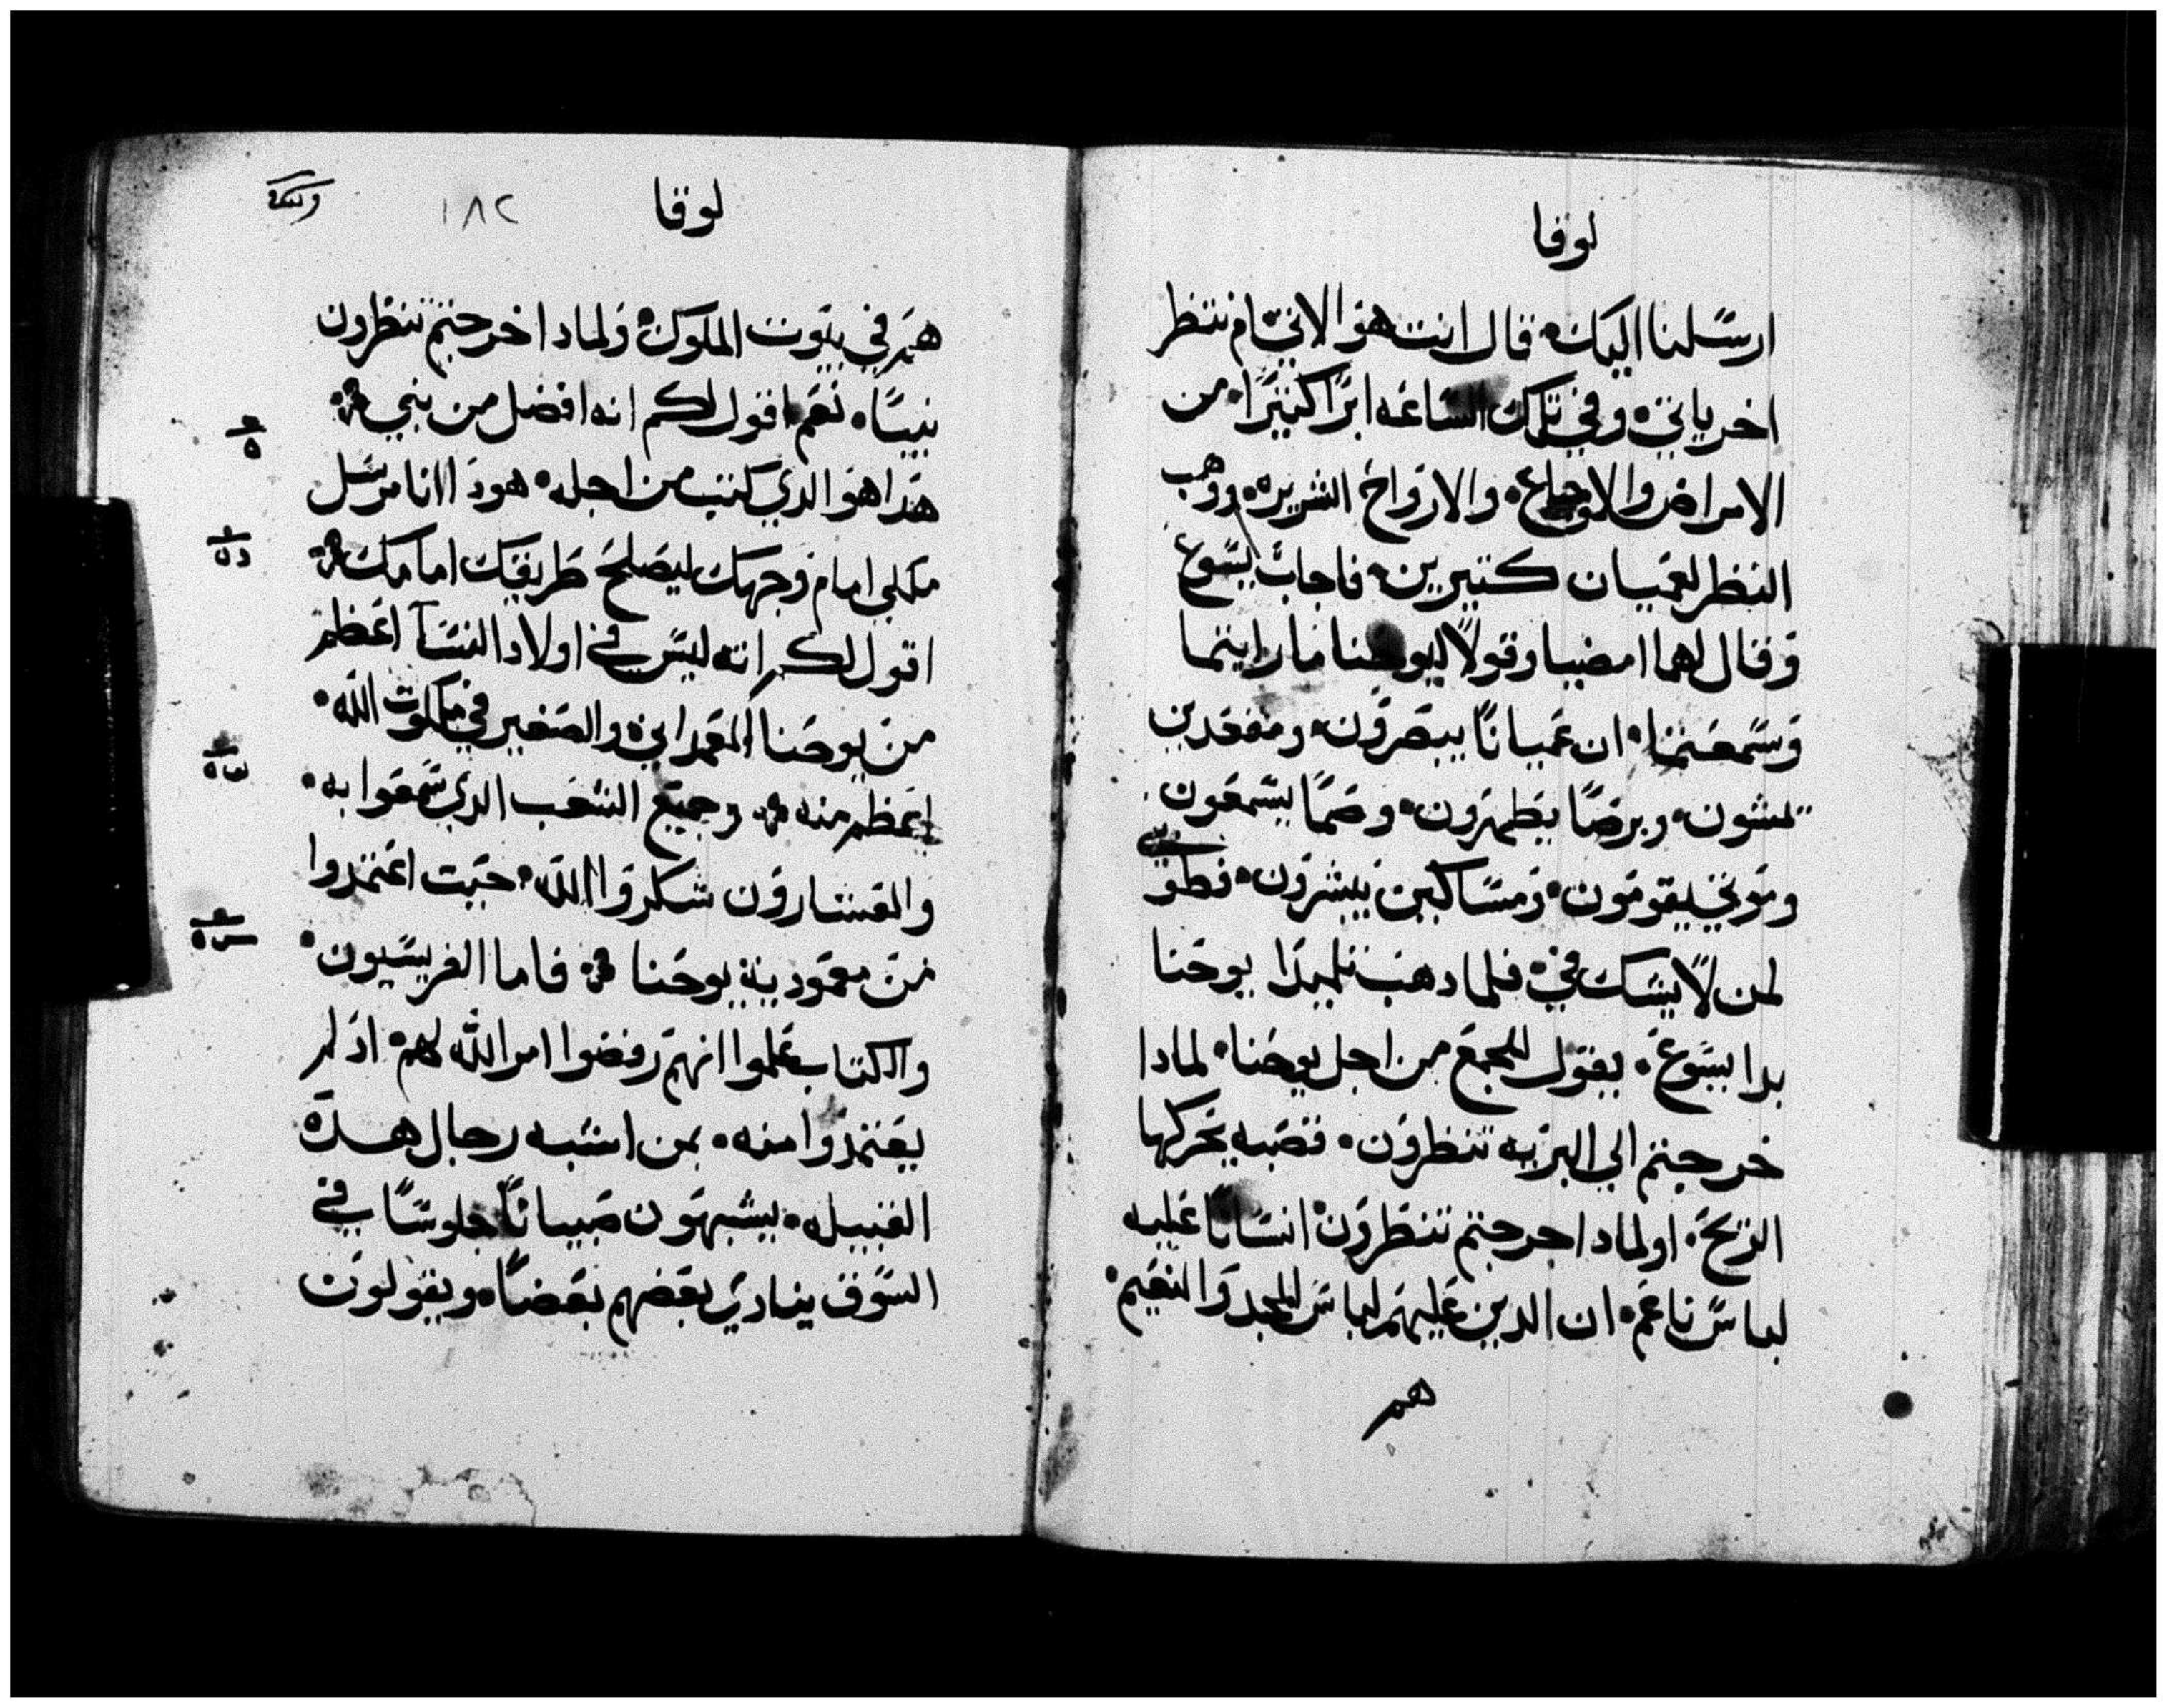 لوقا
ارسلنا اليك قال انت هو الاتي ام ننتظر
اخر ياتي وفي تلك الساعه ابرا كثيرا من
الامراض والاوجاع والارواح الشريره ووهب
النظر لعميان كتيرين فاجاب يسوع
وقال لهما امضيا وقولا ليوحنا ما رايتما
وسمعتما ان عميانا يبصرون ومقعدين
يمشون وبرصا يطهرون وصما يسمعون
وموتي يقومون ومساكين يبشرون فطوبي
لمن لا يشك في فلما دهب تلميدا يوحنا
بدا يسوع يقول للجمع من اجل يوحنا لمادا
خرجتم الي البريه تنظرون قصبه يحركها
الريح او لمادا خرجتم تنظرون انسانا عليه
لباس ناعم ان الدين عليهم لباس المجد والنعيم
هم
لوقا
١٨٢
هم في بيوت الملوك ولمادا خرجتم تنظرون
نبيا نعم اقول لكم انه افضل من نبي
هدا هو الدي كتب من اجله هودا انا مرسل
ملاكي امام وجهك ليصلح طريقك امامك
اقول لكم انه ليس في اولاد النسا اعظم
من يوحنا المعمداني والصغير في ملكوت الله
اعظم منه وجميع الشعب الدي سمعوا به
والعشارون شكروا الله حيت اعتمدوا
من معمودية يوحنا فاما الفريسيون
والكتاب علموا انهم رفضوا امر الله لهم اد لم
يعتمدوا منه بمن اشبه رجال هده
القبيله يشبهون صبيانا جلوسا في
السوق ينادي بعضهم بعضا ويقولون